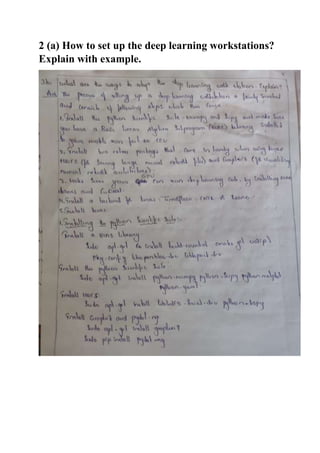 2 (a) How to set up the deep learning workstations?
Explain with example.
what are the ways to setup the deep learning work stations explain?
The process of setting up a deep learning workstation is fairly involved
and consists of following steps which this
1. Install the python scientific - numpy and scipy and make sure
you have a Basic linear Algebra Subprogram (BLAS) library installed
so your models run fast on CPU
2. Install two extra package that come in handy when using keras
HDF5 (for saving large neural network files) and Graphviz (for visualizing
neural network architecture)
3. Make Sure your GPU can run deep learning code, by installing CUDA
drivers and CuDNN
4. Install a backend for keras Tensorflow, CNTK or theano
5. Install keras
1. Installing the python Scientific
Install a BLAS library
Sudo apt-get install build-essential cmake git unzip \
pkg-config libopenblas-dev liblapack-dev
Install the python Scientific
Sudo apt-get install python-numpy python-scipy python-matplot
python-yaml
Install HDF5
Sudo apt-get install libhdf5-serial-dev python-h5py
Install Graphviz and pydot-ng
Sudo apt-get install graphviz
Sudo pip install pydot-ng